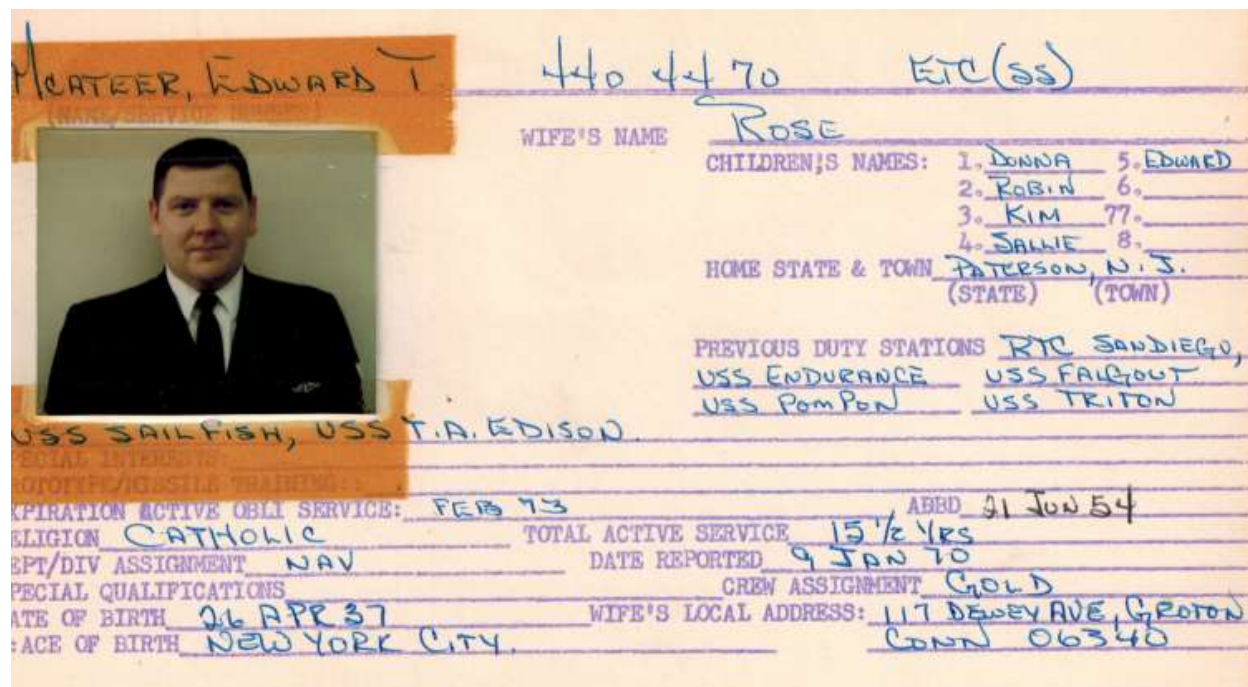 McATEER, EDWARD T. 440 44 70 ETC(SS)
(NAME/SERVICE NUMBER)
WIFE'S NAME ROSE
CHILDREN;S NAMES: 1. DONNA 5. EDWARD
2. ROBIN 6.
3. KIM 77.
4. SALLIE 8.
HOME STATE & TOWN PATERSON, N.J.
(STATE) (TOWN)
PREVIOUS DUTY STATIONS RTC SANDIEGO,
USS ENDURANCE USS FALGOUT
USS POMPON USS TRITON
USS SAILFISH, USS T.A. EDISON.
PECIAL INTERESTS:
ROTOTYPE/MISSILE TRAINING:
XPIRATION ACTIVE OBLI SERVICE: FEB 73 ABBD 21 JUN 54
ELIGION CATHOLIC TOTAL ACTIVE SERVICE 15 1/2 YRS
EPT/DIV ASSIGNMENT NAV DATE REPORTED 9 JAN 70
PECIAL QUALIFICATIONS CREW ASSIGNMENT GOLD
ATE OF BIRTH 26 APR 37 WIFE'S LOCAL ADDRESS: 117 DEWEY AVE, GROTON
ACE OF BIRTH NEW YORK CITY. CONN 06340